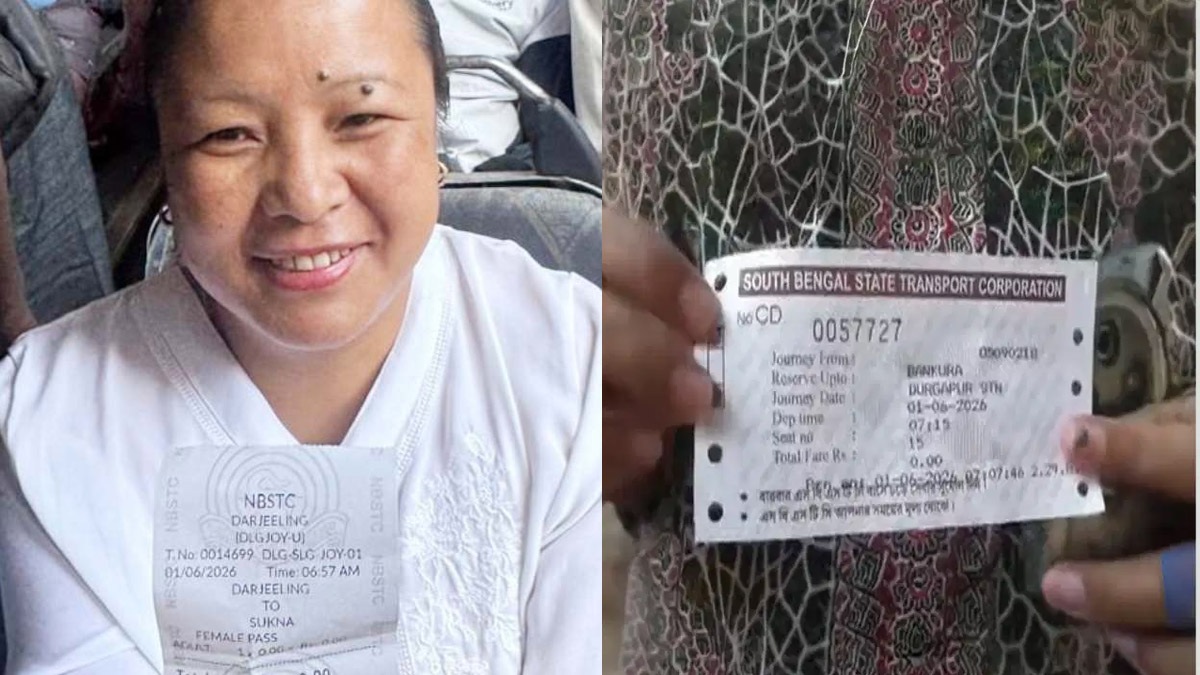 NBSTC
DARJEELING
(DLGJOY-U)
T.No: 0014699 DLG-SLG JOY-01
01/06/2026 Time: 06:57 AM
DARJEELING
TO
SUKNA
FEMALE PASS
ADULT: 1 x 0.00 = Rs 0.00
NBSTC
NBSTC
NBSTC
NBSTC
SOUTH BENGAL STATE TRANSPORT CORPORATION
No CD 0057727
05090218
Journey From : BANKURA
Reserve Upto : DURGAPUR STN
Journey Date : 01-06-2026
Dep time : 07:15
Seat no : 15
Total Fare Rs : 0.00
01-06-2026 07:07:46